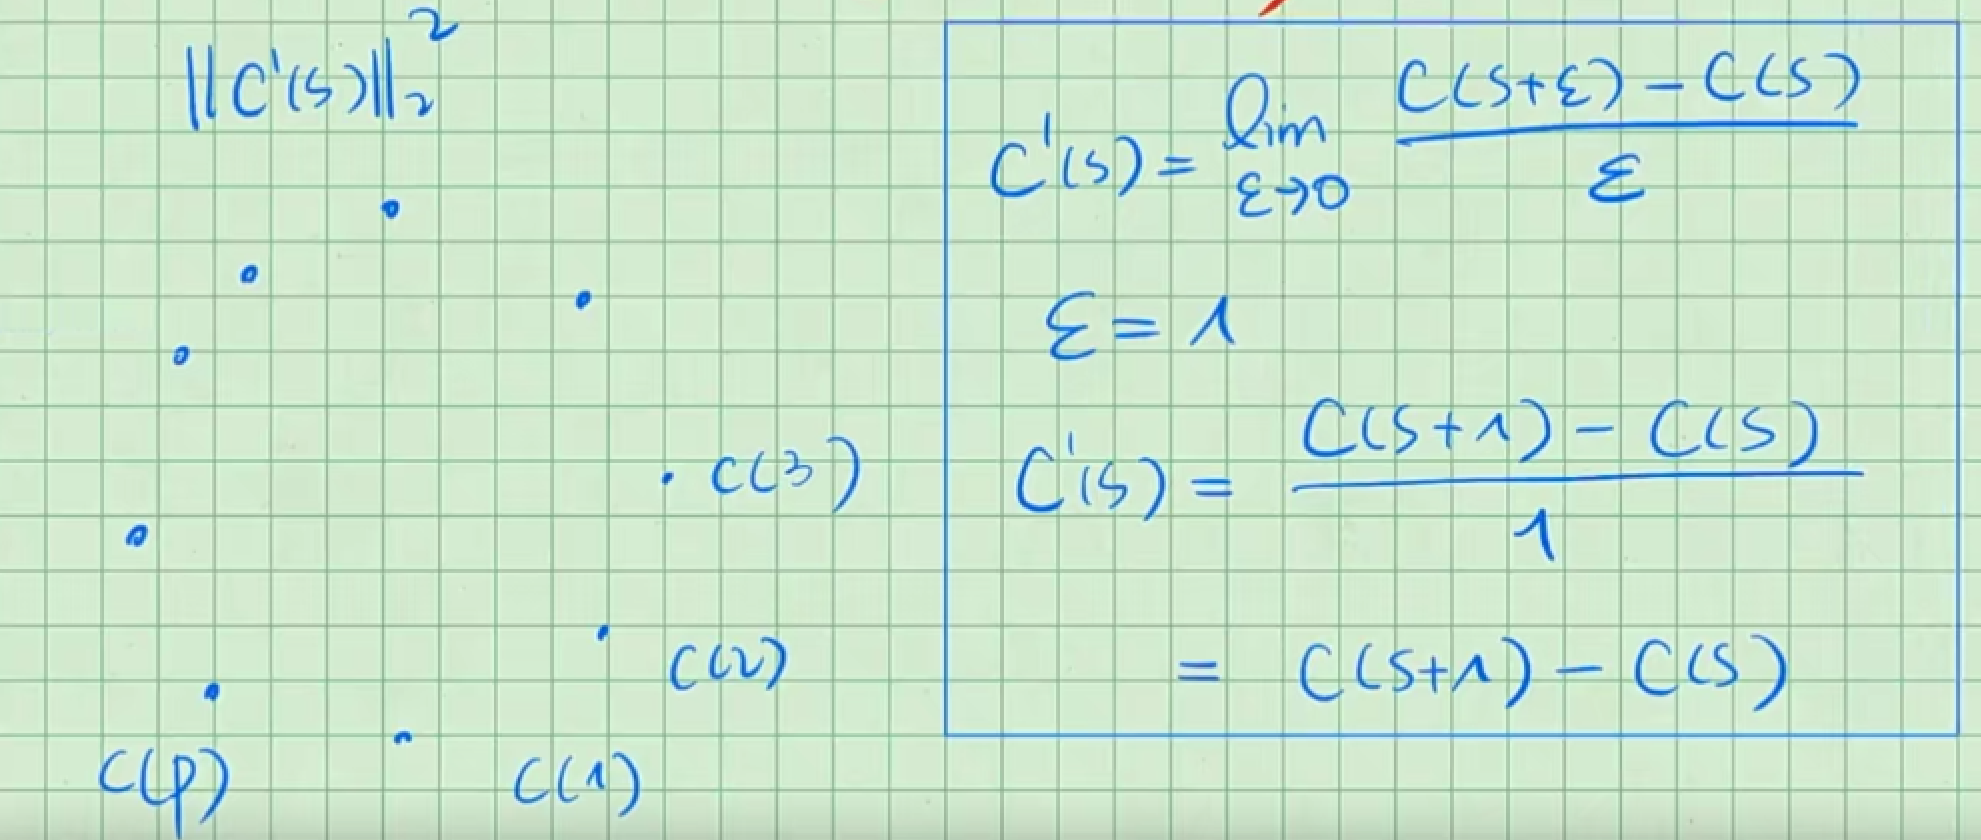 ||C'(s)||₂²
C(3)
C(2)
C(φ)
C(1)
C'(s) = lim ε→0 (C(s+ε) - C(s)) / ε
ε = 1
C'(s) = (C(s+1) - C(s)) / 1
= C(s+1) - C(s)